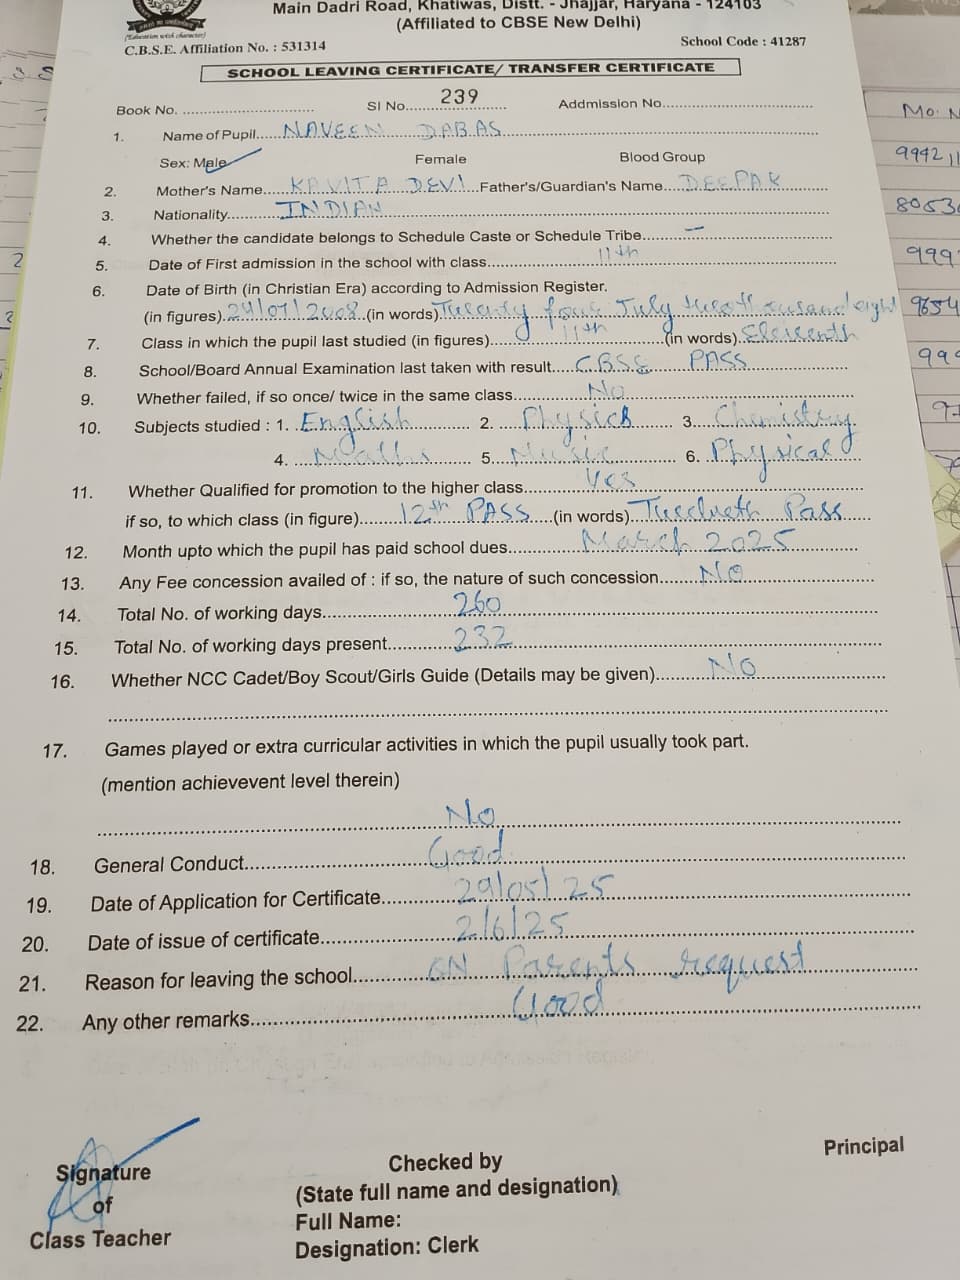 Main Dadri Road, Khatiwas, Distt. - Jhajjar, Haryana - 124103
(Affiliated to CBSE New Delhi)
(Education with character)
C.B.S.E. Affiliation No. : 531314 School Code : 41287
SCHOOL LEAVING CERTIFICATE/ TRANSFER CERTIFICATE
Book No. Sl No. 239 Addmission No.
1. Name of Pupil NAVEEN DABAS
Sex: Male Female Blood Group
2. Mother's Name KAVITA DEVI Father's/Guardian's Name DEEPAK
3. Nationality INDIAN
4. Whether the candidate belongs to Schedule Caste or Schedule Tribe —
5. Date of First admission in the school with class 11th
6. Date of Birth (in Christian Era) according to Admission Register.
(in figures) 24/07/2008 (in words) Twenty four July two thousand eight
7. Class in which the pupil last studied (in figures) 11th (in words) Eleventh
8. School/Board Annual Examination last taken with result CBSE PASS
9. Whether failed, if so once/ twice in the same class No
10. Subjects studied : 1. English 2. Physics 3. Chemistry
4. Maths 5. Music 6. Physical
11. Whether Qualified for promotion to the higher class Yes
if so, to which class (in figure) 12th PASS (in words) Twelveth Pass
12. Month upto which the pupil has paid school dues March 2025
13. Any Fee concession availed of : if so, the nature of such concession No
14. Total No. of working days 260
15. Total No. of working days present 232
16. Whether NCC Cadet/Boy Scout/Girls Guide (Details may be given) No
17. Games played or extra curricular activities in which the pupil usually took part.
(mention achievevent level therein)
No
18. General Conduct Good
19. Date of Application for Certificate 29/05/25
20. Date of issue of certificate 2/6/25
21. Reason for leaving the school ON Parents request
22. Any other remarks Good
Signature
of
Class Teacher
Checked by
(State full name and designation)
Full Name:
Designation: Clerk
Principal
Mo. N